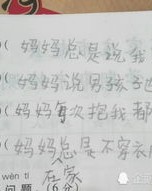 妈妈总是说我
妈妈说男孩子
妈妈每次抱我都
妈妈总是不穿衣
在家
wèn tí
问题 (6分)